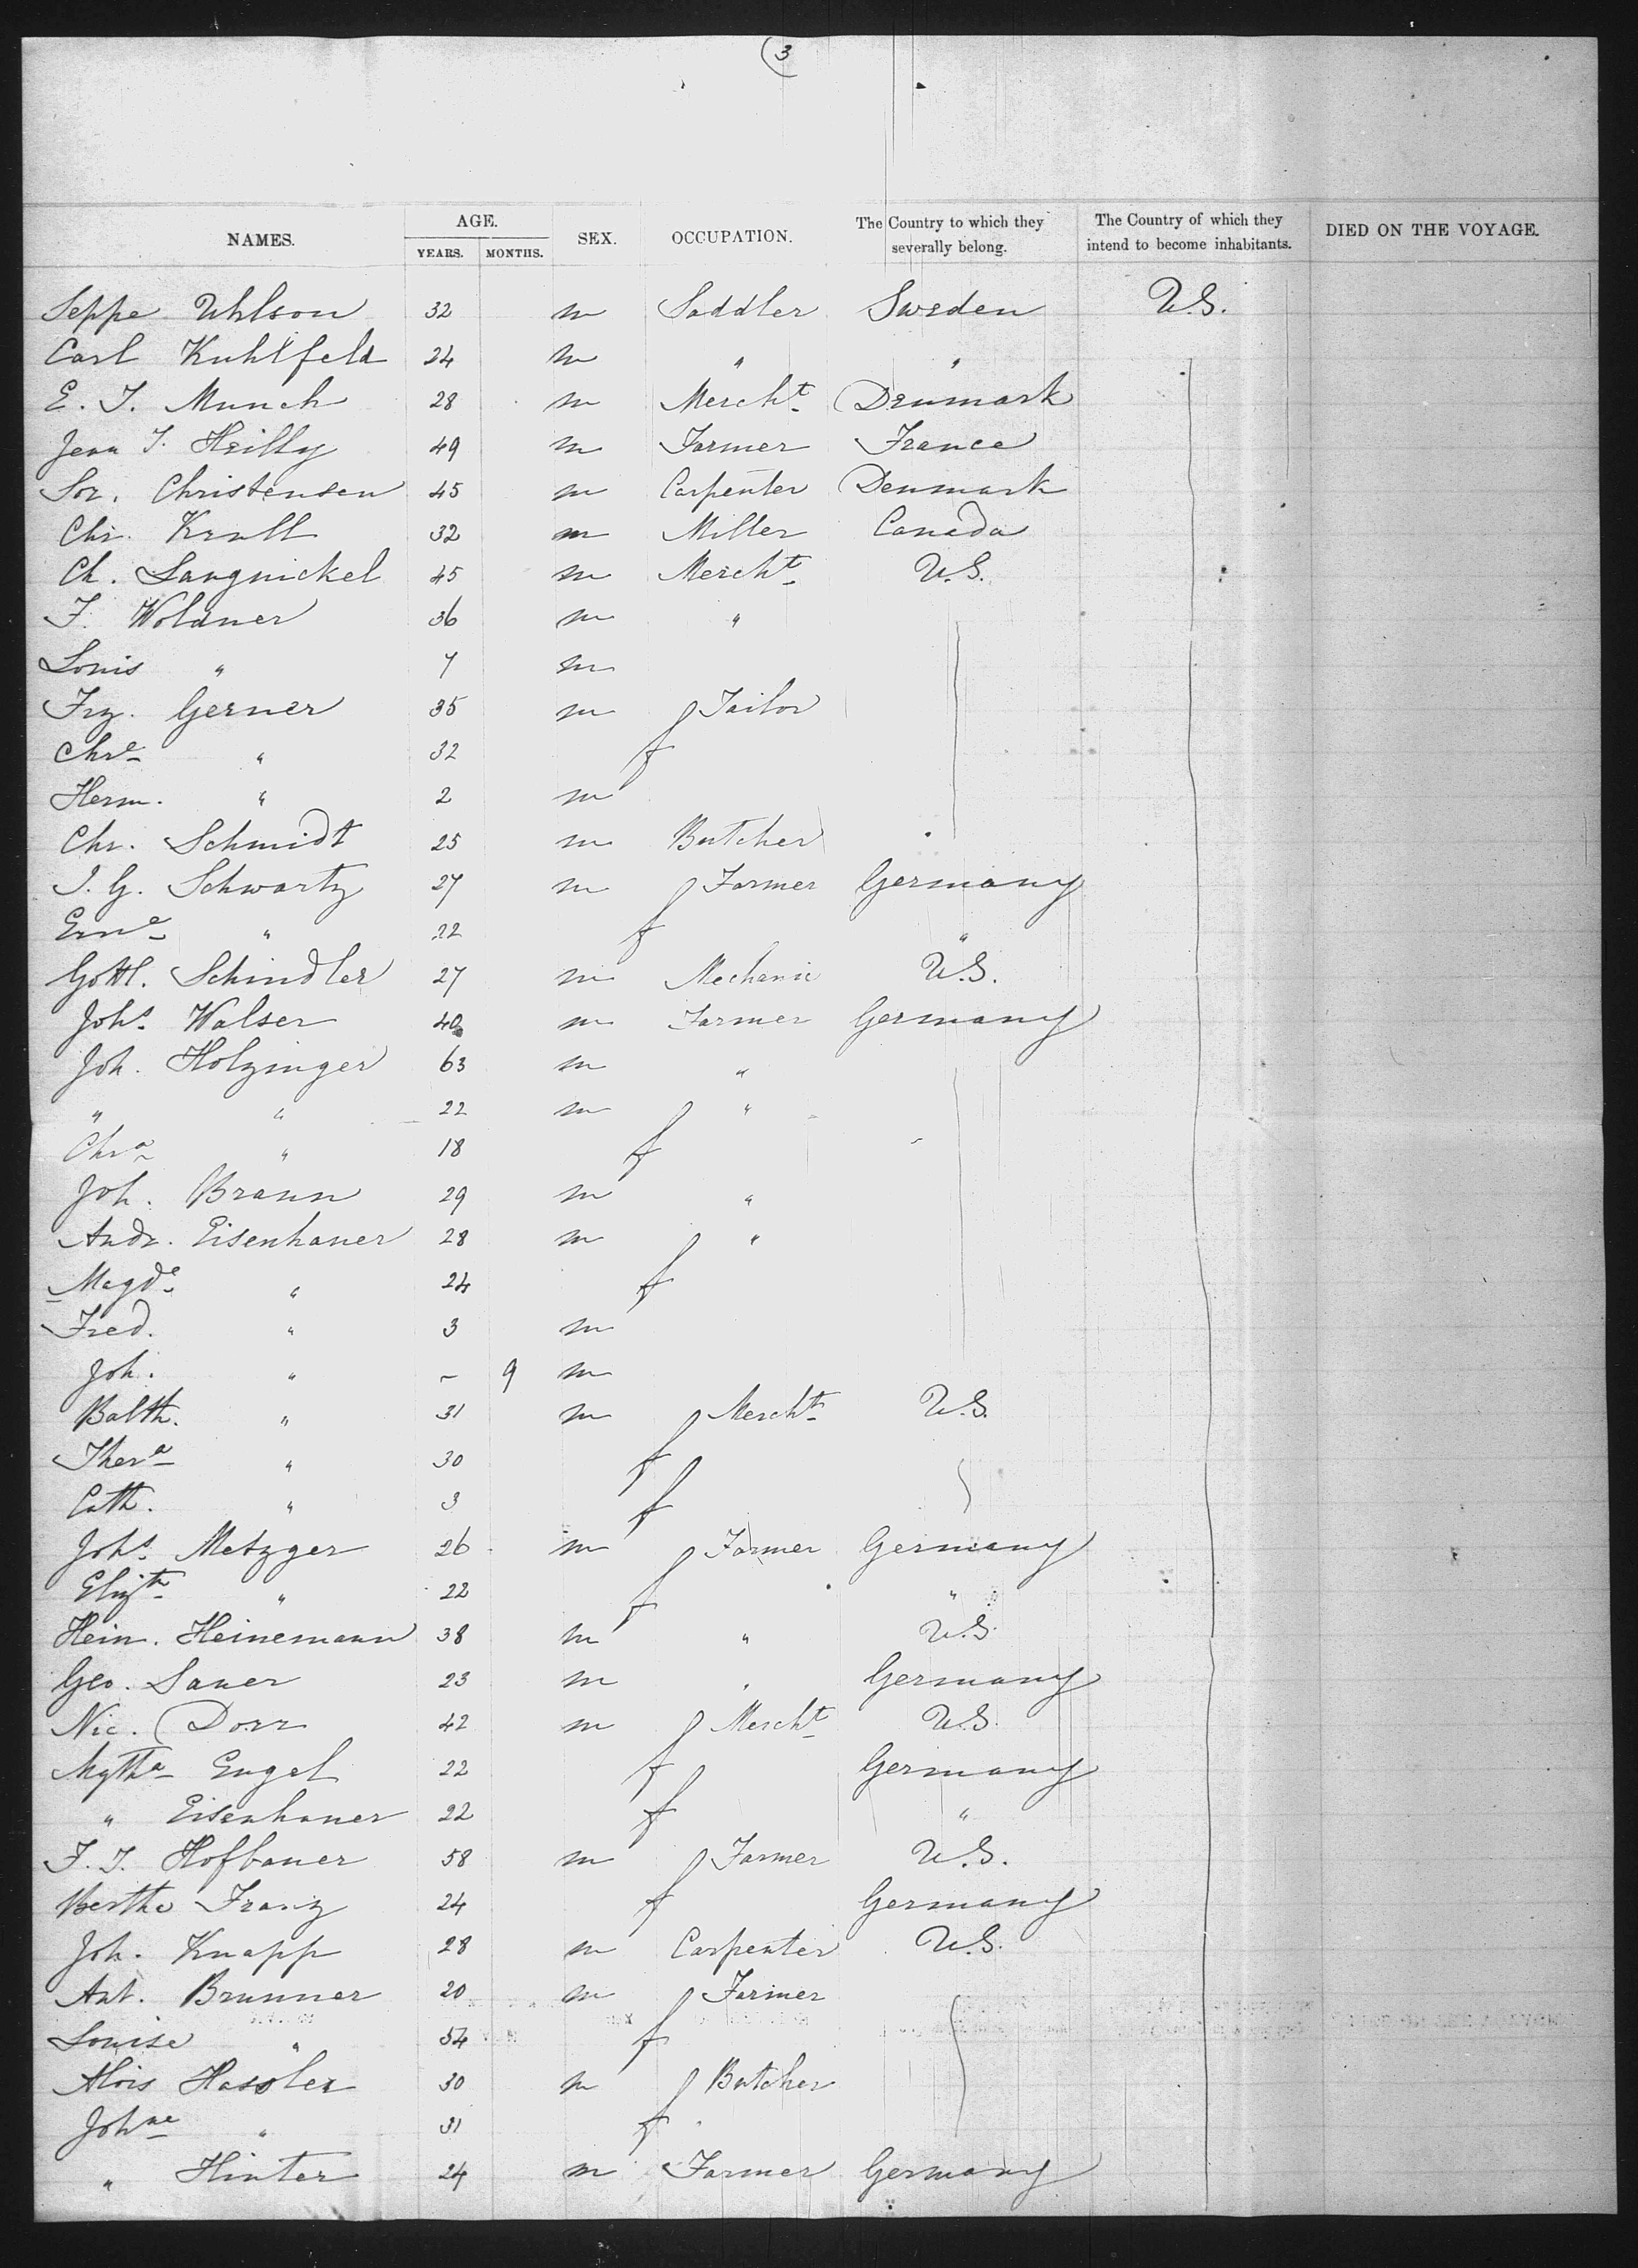 3
NAMES. AGE. YEARS. MONTHS. SEX. OCCUPATION. The Country to which they severally belong. The Country of which they intend to become inhabitants. DIED ON THE VOYAGE.
Seppe Uhlson 32 m Saddler Sweden U.S.
Carl Kuhlfeld 24 m " "
E. J. Munch 28 m Mercht Denmark
Jean J. Heilly 49 m Farmer France
Sor. Christensen 45 m Carpenter Denmark
Chr. Krull 32 m Miller Canada
Ch. Langnickel 45 m Mercht U.S.
F. Woldner 36 m "
Louis " 7 m
Frz. Gerner 35 m Tailor
Chre " 32 f
Herm. " 2 m
Chr. Schmidt 25 m Butcher
J. G. Schwartz 27 m Farmer Germany
Erne " 22 f "
Gottl. Schindler 27 m Mechanic U.S.
Johs Walser 40 m Farmer Germany
Joh. Holzinger 63 m "
" " 22 m "
Chra " 18 f
Joh. Braun 29 m "
Andr. Eisenhauer 28 m "
Magde " 24 f
Fred. " 3 m
Joh. " - 9 m
Balth. " 31 m Mercht U.S.
Thera " 30 f
Cath. " 3 f
Johs Metzger 26 m Farmer Germany
Elizth " 22 f "
Hein. Heinemann 38 m " U.S.
Geo. Sauer 23 m " Germany
Nic. Dorr 42 m Mercht U.S.
Mgtha Engel 22 f Germany
" Eisenhauer 22 f "
F. J. Hofbauer 58 m Farmer U.S.
Bertha Franz 24 f Germany
Joh. Knapp 28 m Carpenter U.S.
Ant. Brunner 20 m Farmer
Louise " 54 f
Alois Hassler 30 m Butcher
Johne " 31 f
" Hinter 24 m Farmer Germany